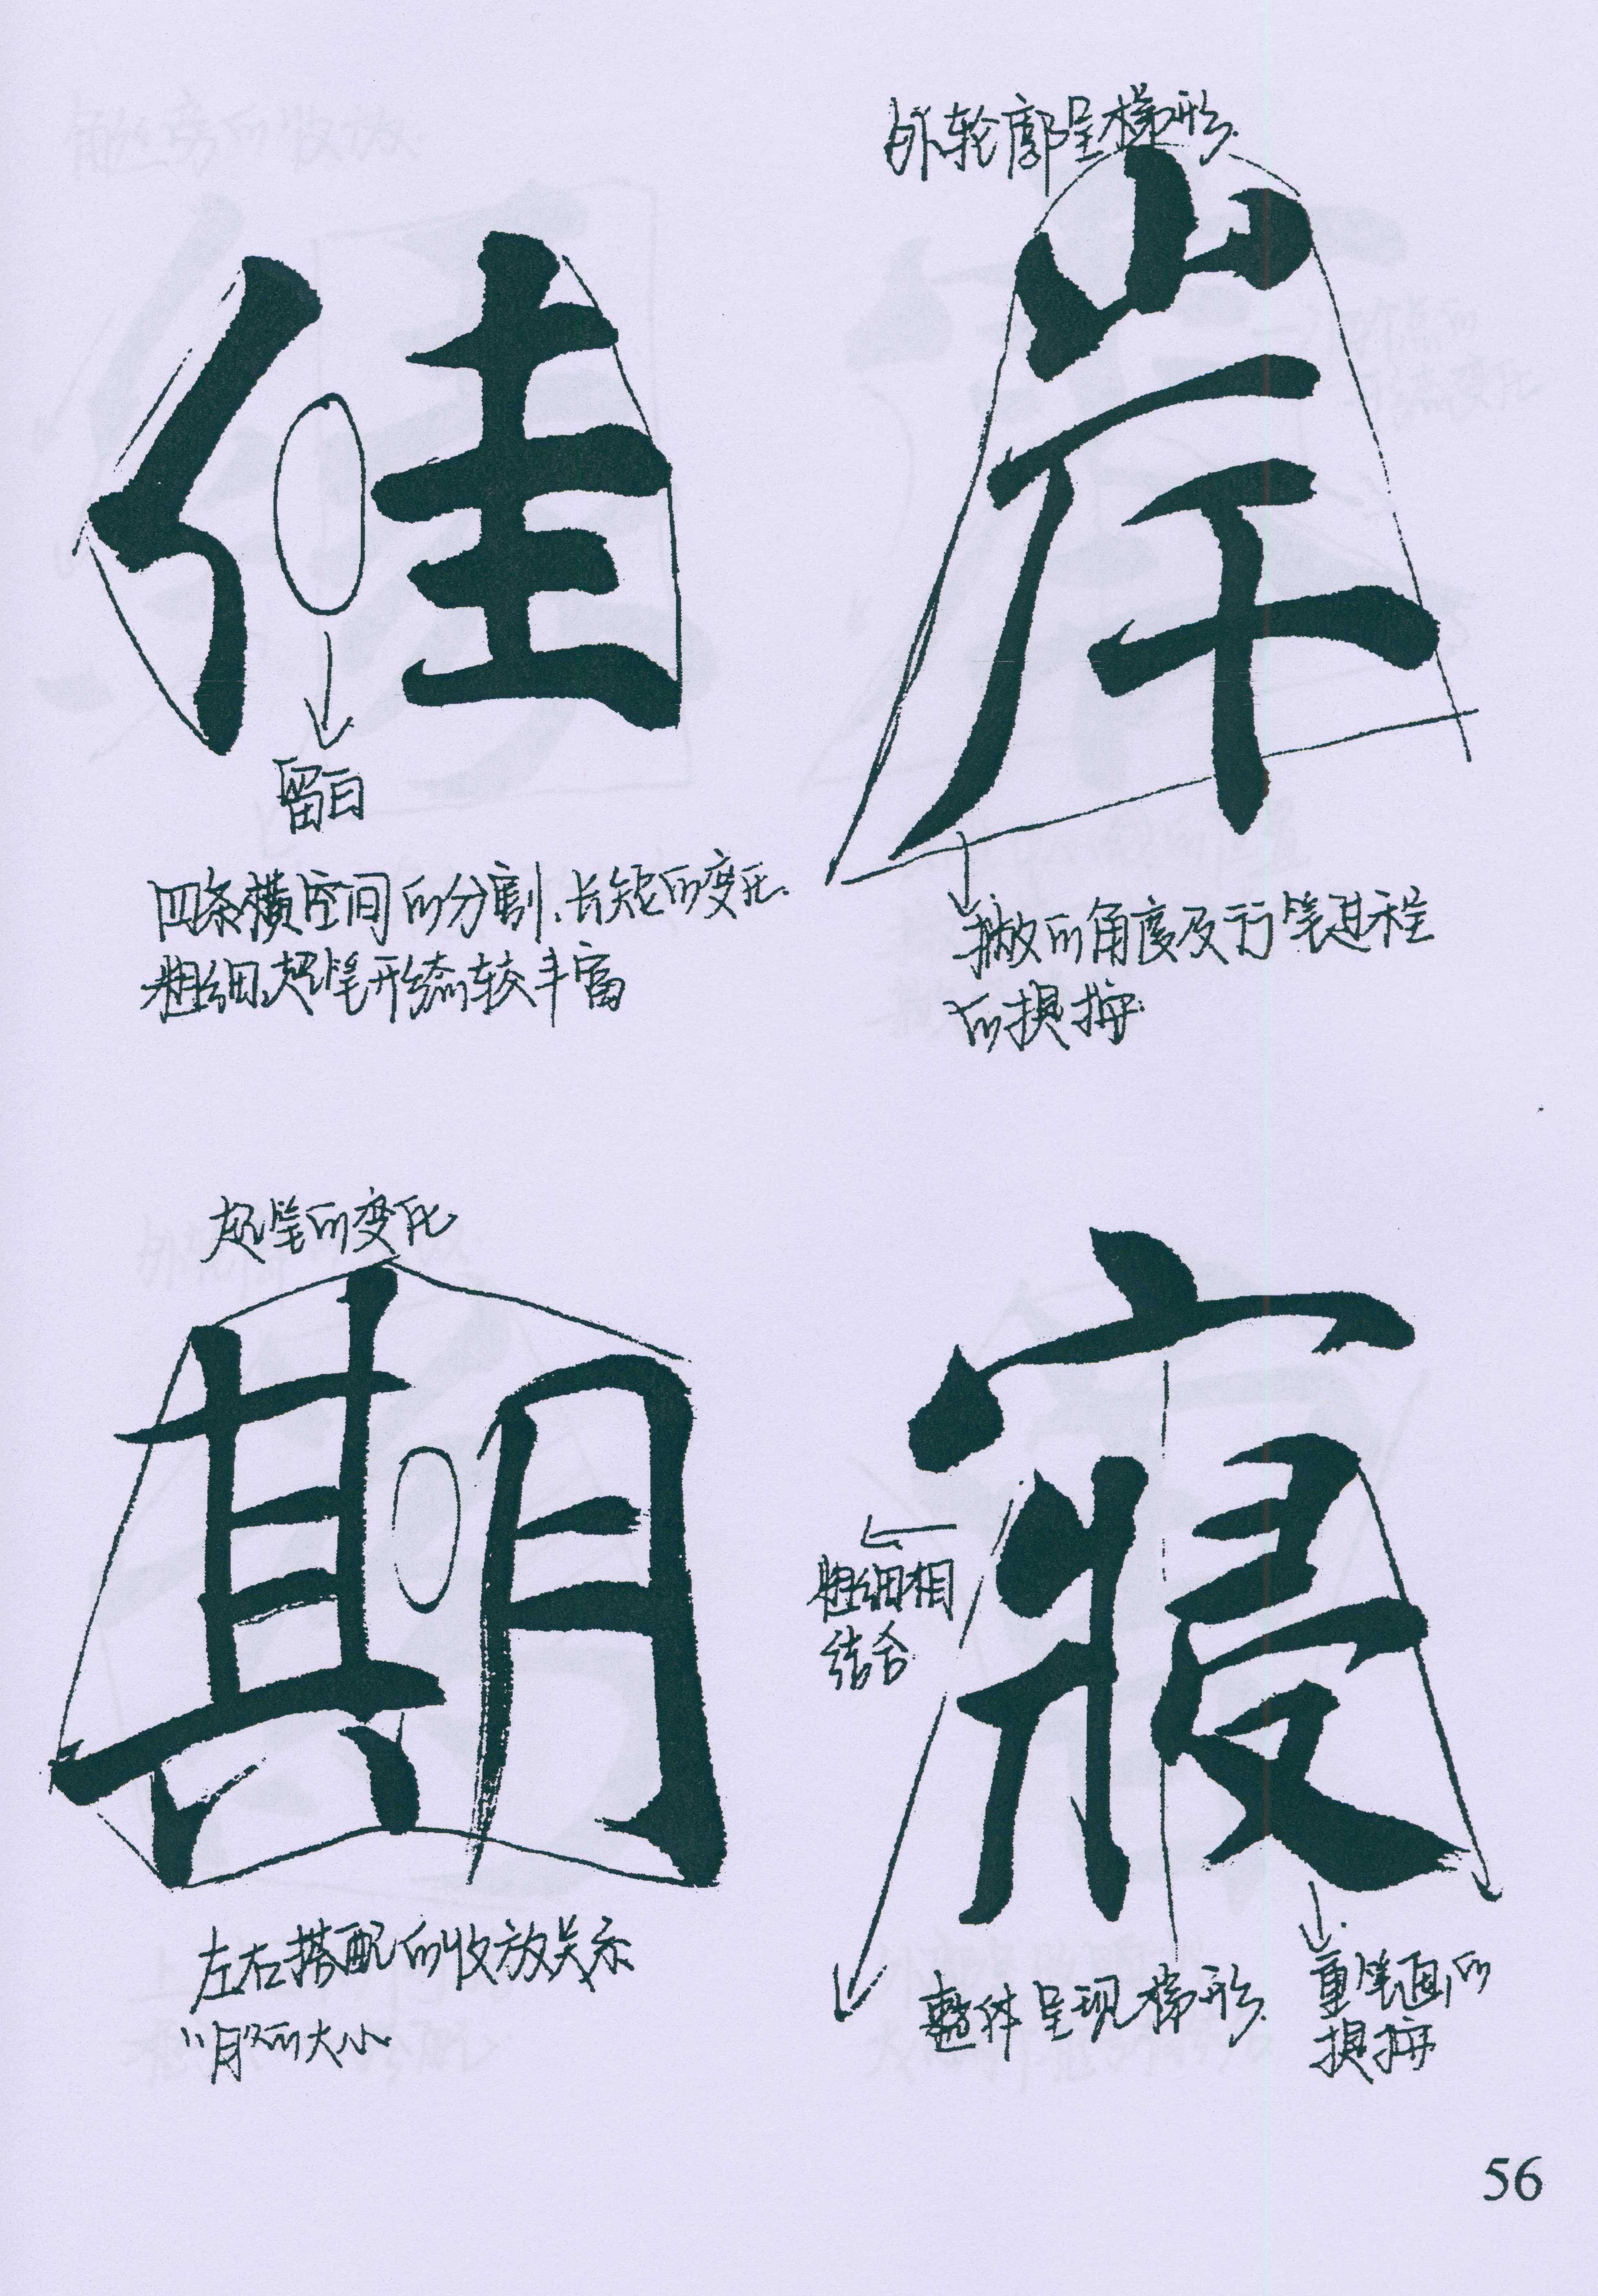 外轮廓呈梯形.
佳
岸
留白
四条横空间的分割、长短的变化.
粗细,起笔形态较丰富
撇的角度及行笔过程
的提按.
起笔的变化
期
寢
粗细相
结合.
左右搭配的收放关系
"月"的大小
整体呈现梯形.
重笔画的
提按
56